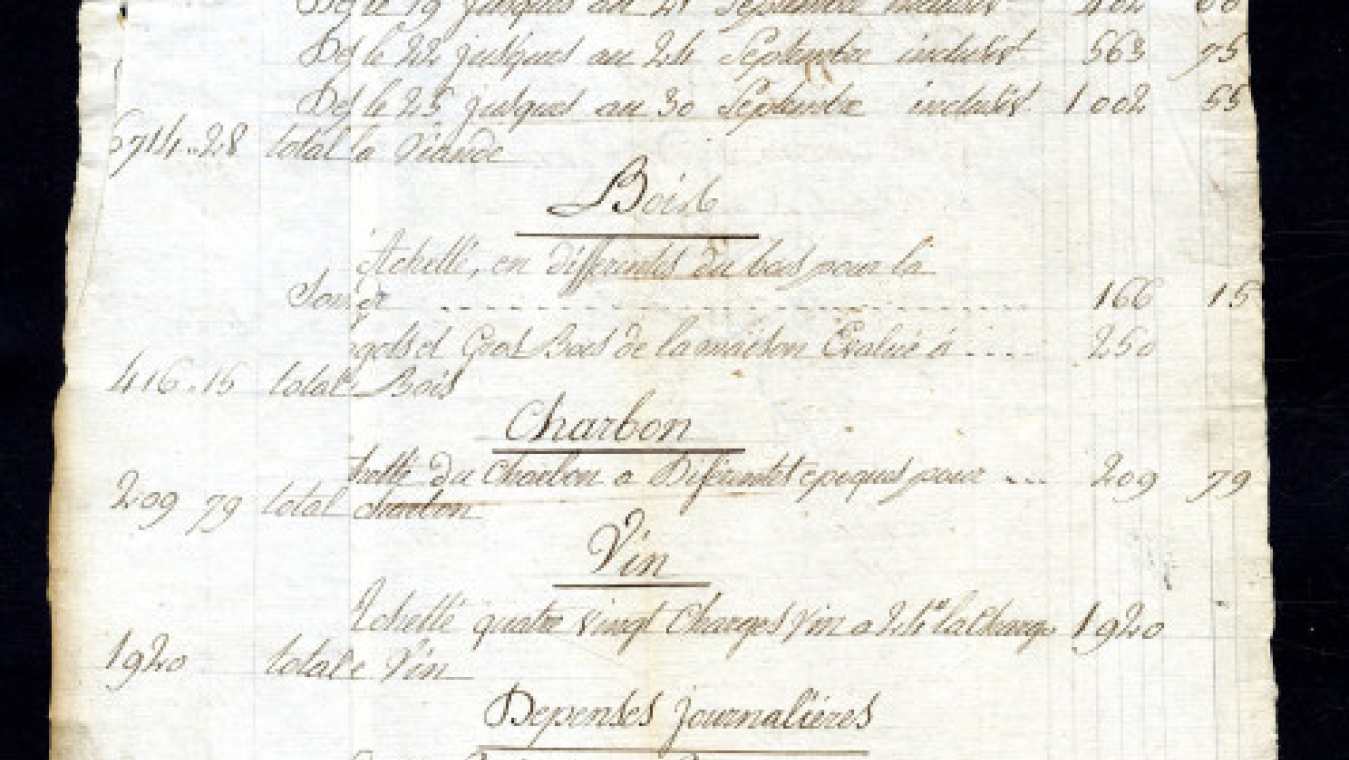 Des le 19 jusques au 21 Septembre inclusiv 402 60
Des le 22 jusques au 24 Septembre inclusiv 563 75
Des le 25 jusques au 30 Septembre inclusiv 1002 55
6714..28 total la Viande
Bois
Achetté, en differents du bois pour la
166 15
Gros Bois de la maison Evalué à .... 250
416..15 total Bois
Charbon
du Charbon a Diferents epoques pour ... 209 79
209 79 total charbon
Vin
Achetté quatre vingt Charges Vin a 24 la Charge 1920
1920 total Vin
Depenses journalieres